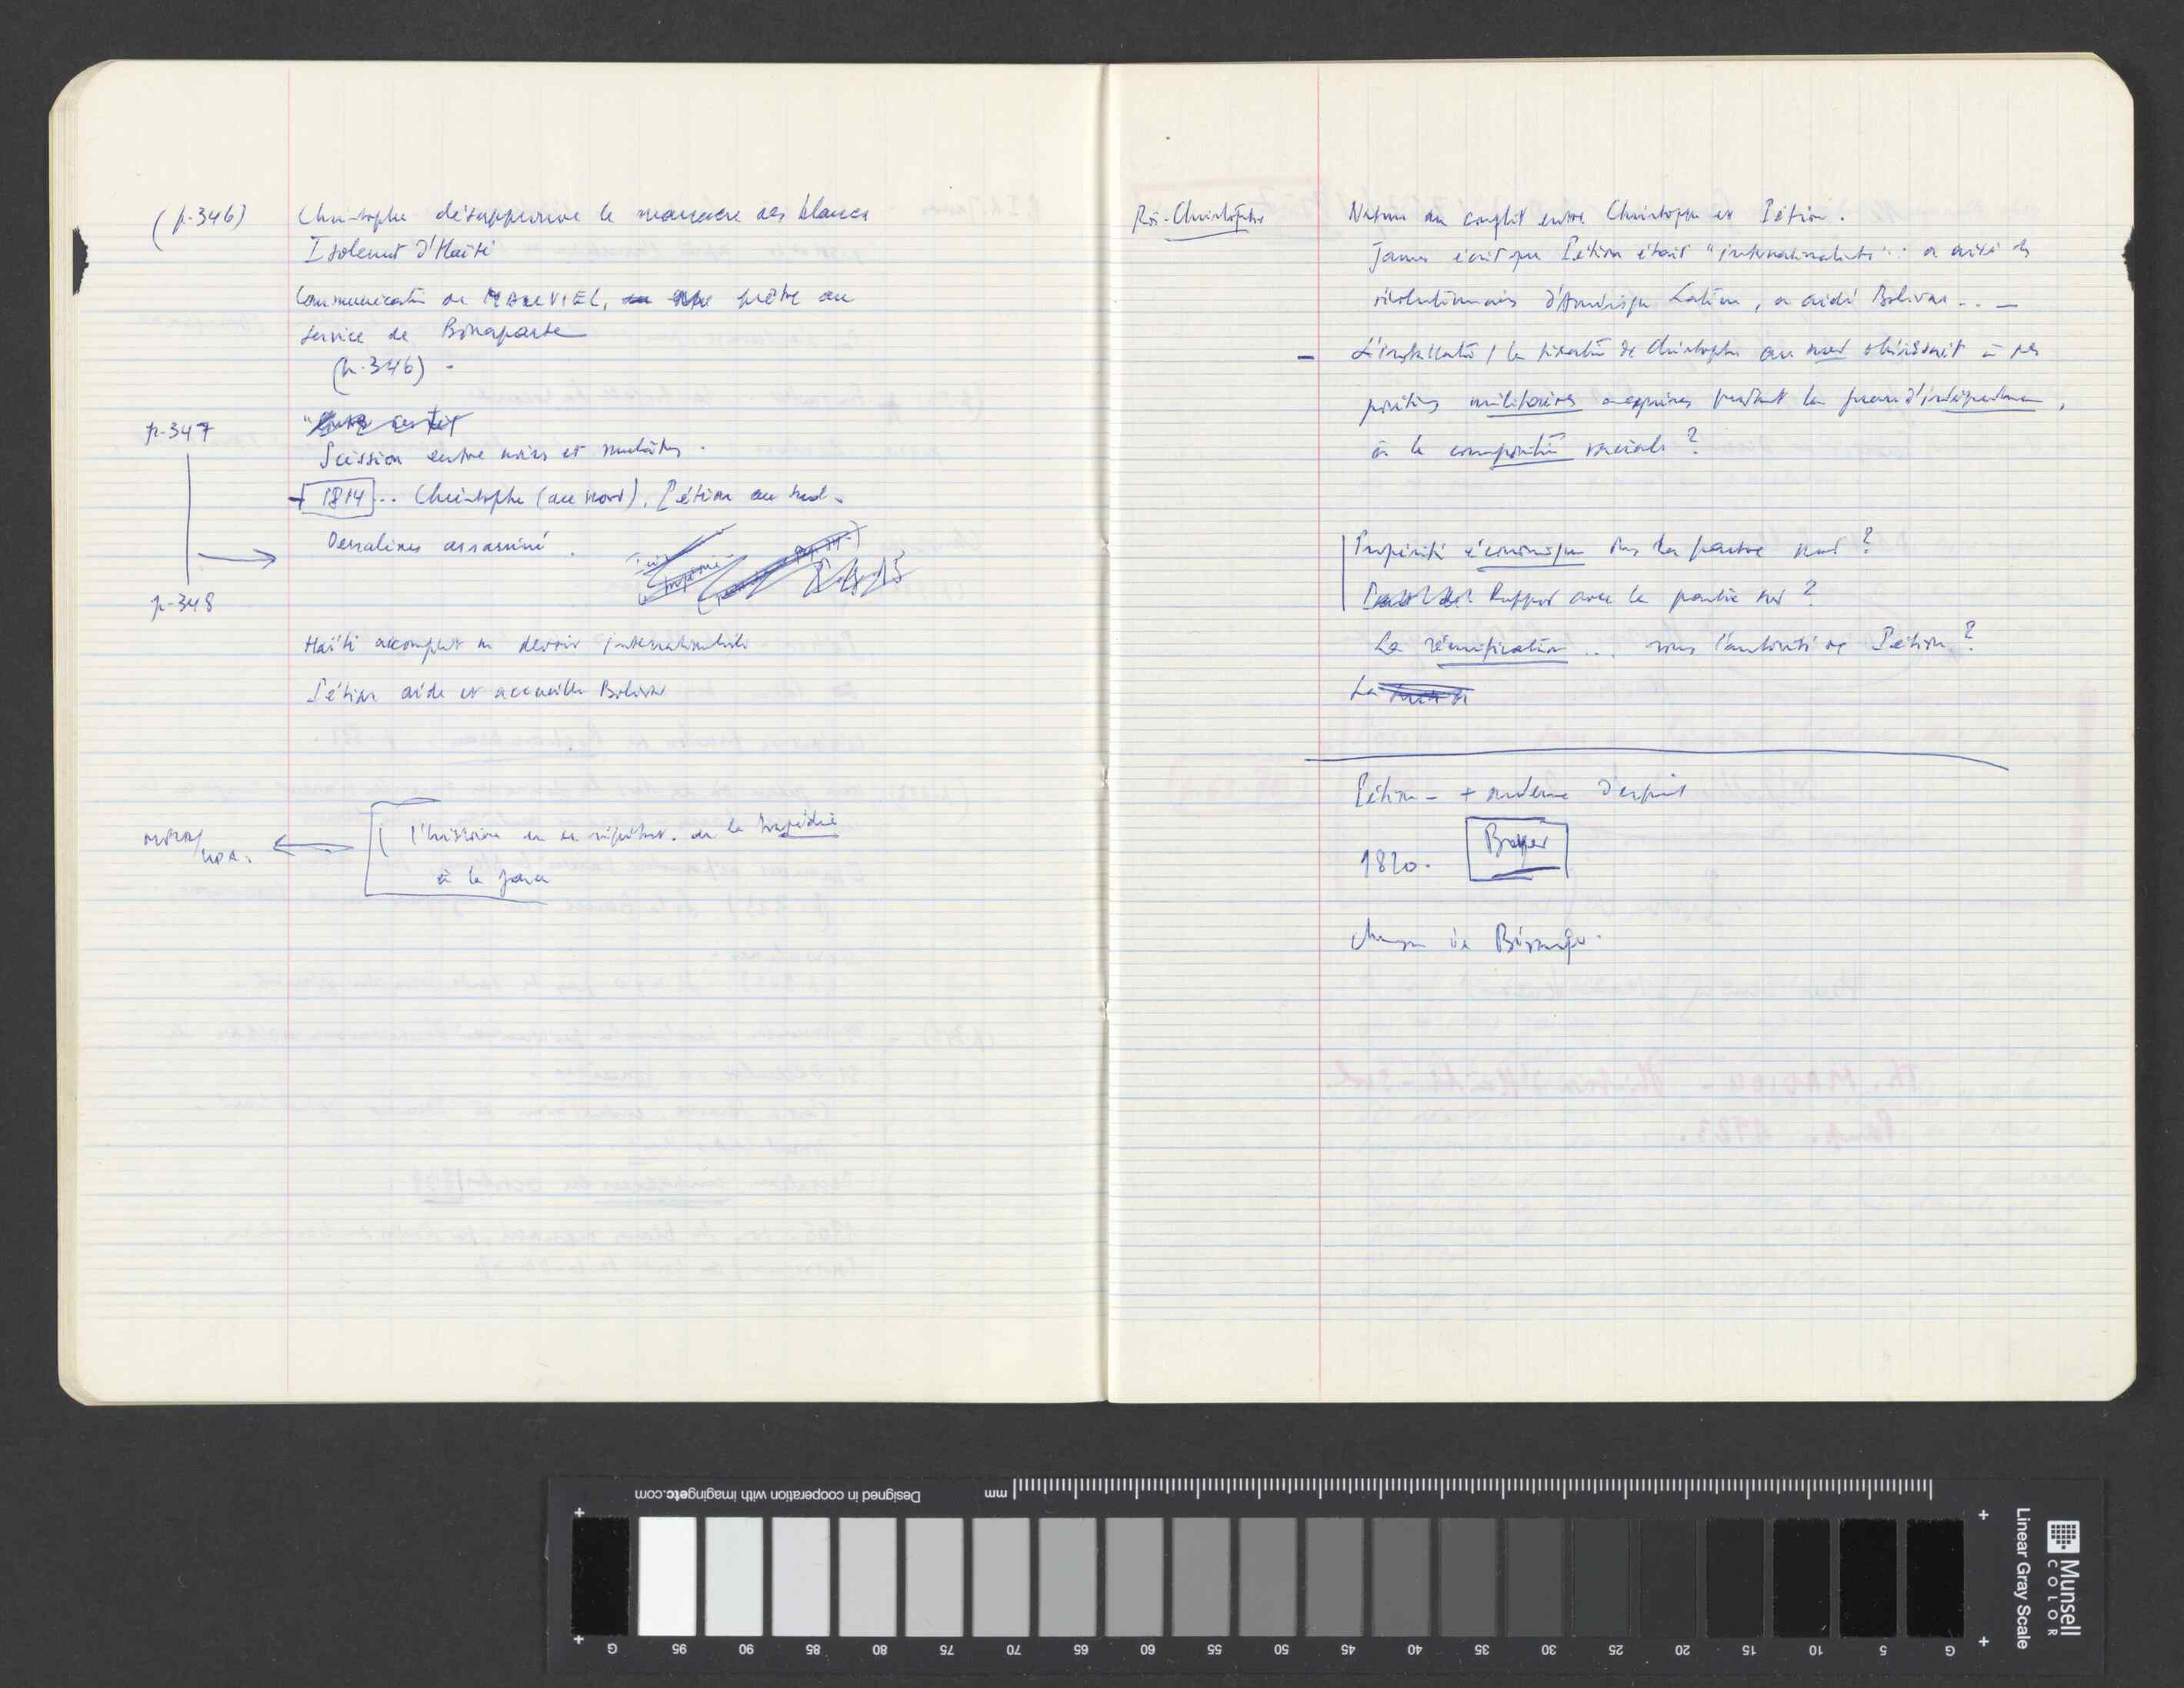 (p.346)
Christophe désapprouve le massacre des blancs
Isolement d'Haïti
Communication de MAUVIEL, prêtre au
service de Bonaparte
(p.346) -
p.347
Scission entre noirs et mulâtres.
1814 ... Christophe (au nord), Pétion au sud.
Dessalines assassiné.
p.348
Haïti accomplit un devoir internationaliste
Pétion aide et accueille Bolivar
l'histoire en se répétant. de la tragédie
à la farce
Roi-Christophe
Nature du conflit entre Christophe et Pétion.
James écrit que Pétion était "internationaliste": a aidé les
révolutionnaires d'Amérique Latine, a aidé Bolivar..
- L'installation / la situation de Christophe au nord obéissait à des
positions militaires acquises pendant la guerre d'indépendance,
à la composition raciale ?
Prospérité économique dans la partie nord ?
Rapport avec la partie sud ?
La réunification ... sous l'autorité de Pétion ?
La
Pétion - + moderne d'esprit
1820. Boyer
de
Designed in cooperation with imagingetc.com
mm
G 95 90 85 80 75 70 65 60 55 50 45 40 35 30 25 20 15 10 5 G
Munsell
COLOR
Linear Gray Scale